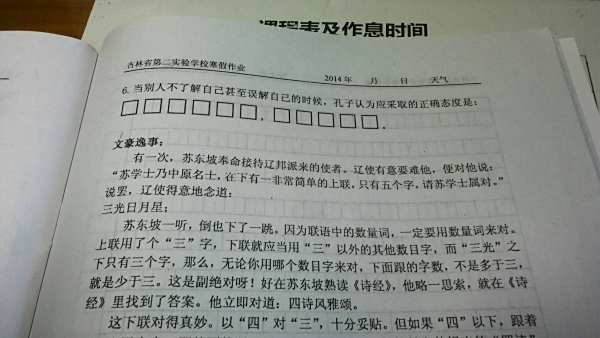 课程表及作息时间
吉林省第二实验学校寒假作业
2014年 月 日 天气
6. 当别人不了解自己甚至误解自己的时候，孔子认为应采取的正确态度是：
□□□□□□□，□□□□□．
文豪逸事：
有一次，苏东坡奉命接待辽邦派来的使者。辽使有意要难他，便对他说：
“苏学士乃中原名士，在下有一非常简单的上联，只有五个字，请苏学士属对。”
说罢，辽使得意地念道：
三光日月星；
苏东坡一听，倒也下了一跳。因为联语中的数量词，一定要用数量词来对。
上联用了个“三”字，下联就应当用“三”以外的其他数目字，而“三光”之
下只有三个字，那么，无论你用哪个数目字来对，下面跟的字数，不是多于三，
就是少于三。这是副绝对呀！好在苏东坡熟读《诗经》，他略一思索，就在《诗
经》里找到了答案。他立即对道：四诗风雅颂。
这下联对得真妙。以“四”对“三”，十分妥贴。但如果“四”以下，跟着